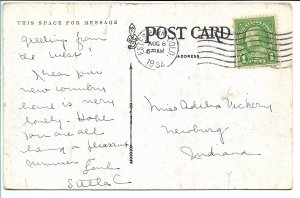 THIS SPACE FOR MESSAGE
POST CARD
ADDRESS
COLO
AUG 8
AM
1934
1
Greeting from
the West!
Mean your
new country
home is very
lovely. Hope
you are all
having a pleasant
summer.
Love
Miss Adelia Vickery
Newburg
Indiana